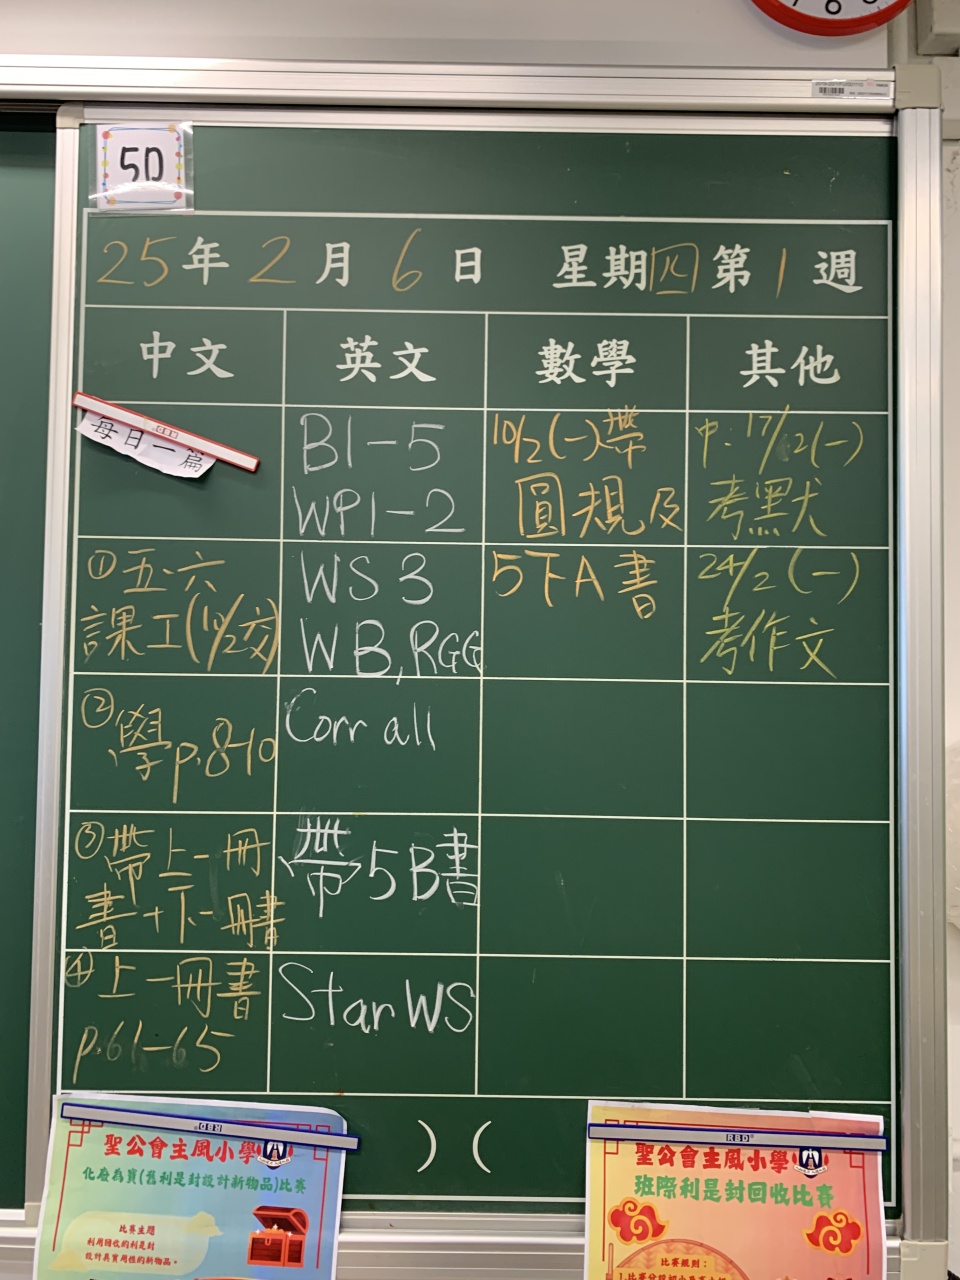 5D
25年2月6日 星期四第1週
中文 英文 數學 其他
每日一篇
①五、六
課工(10/2交)
②學p.8-10
③帶上一冊
書+下一冊書
④上一冊書
p.61-65
B1-5
WP1-2
WS 3
WB,RGG
Corr all
帶5B書
Star WS
10/2(一)帶
圓規及
5下A書
中.17/2(一)
考默
24/2(一)
考作文
)(
聖公會主風小學
化廢為寶(舊利是封設計新物品)比賽
比賽主題
利用回收的利是封
設計具實用性的新物品。
RBD
聖公會主風小學
班際利是封回收比賽
比賽規則：